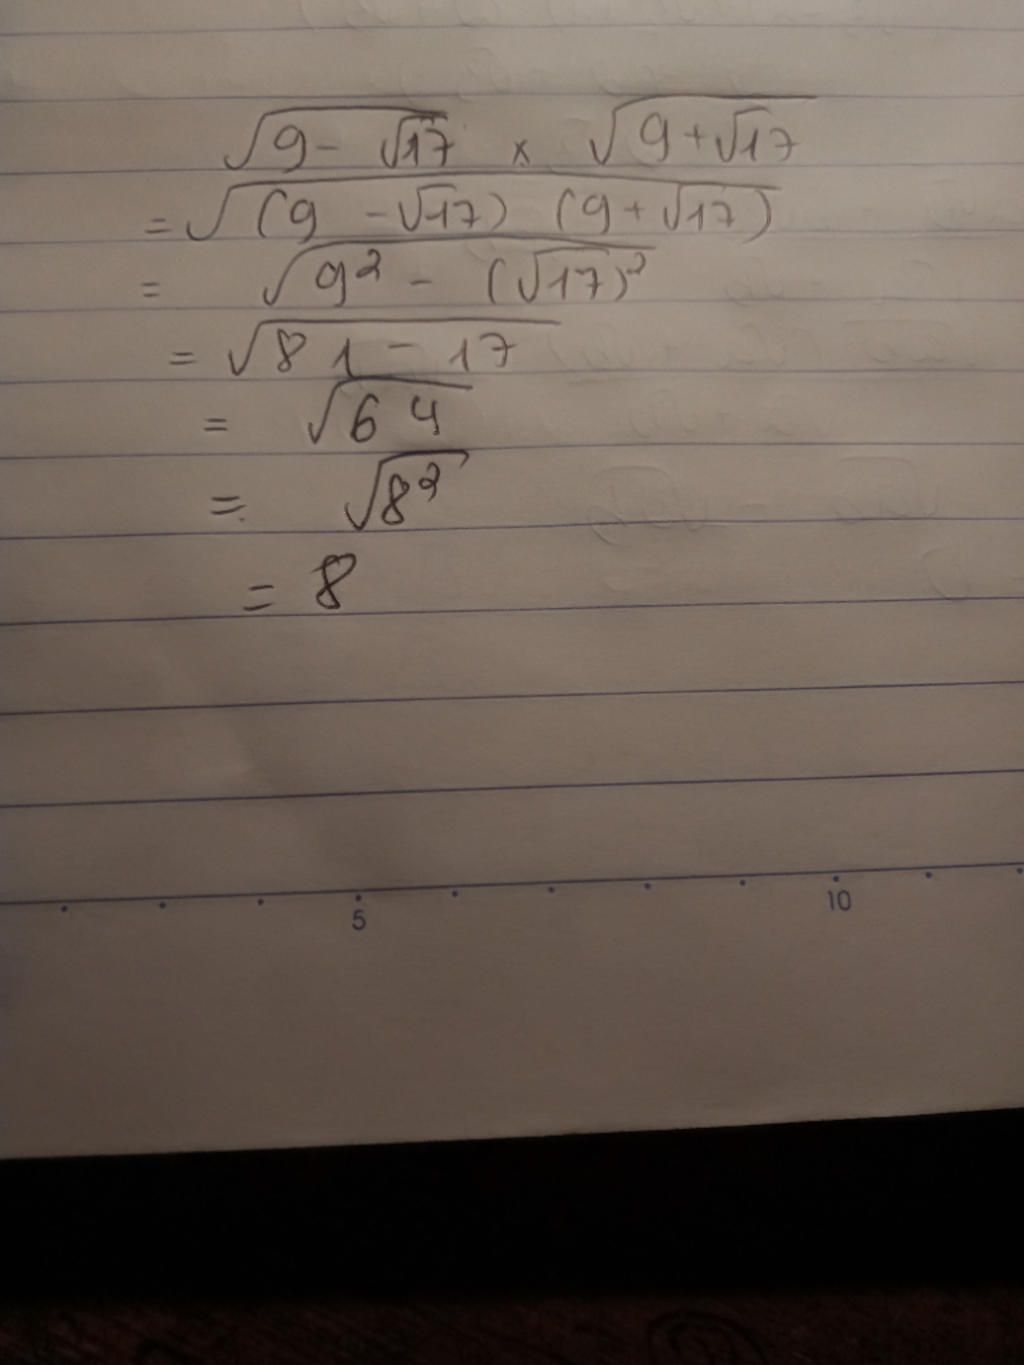 √(9 - √17) × √(9 + √17)
= √((9 - √17) (9 + √17))
= √(9² - (√17)²)
= √(81 - 17)
= √64
= √8²
= 8
5 10